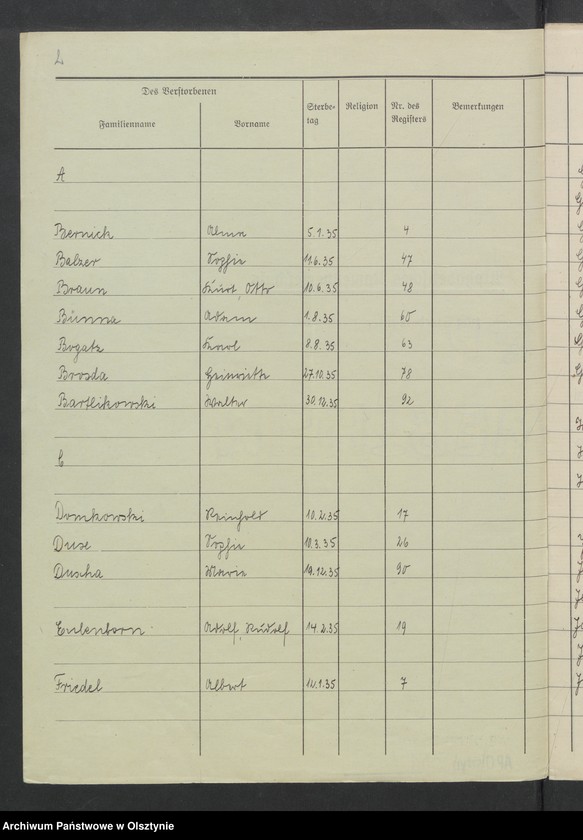 2
Des Verstorbenen
Familienname Vorname Sterbe-tag Religion Nr. des Registers Bemerkungen
A
Bernick Alma 5.1.35 4
Balzer Sophie 11.6.35 47
Braun Kurt, Otto 10.6.35 48
Bünna Adam 1.8.35 60
Bogatz Karl 8.8.35 63
Brosda Henriette 27.10.35 78
Bartlikowski Walter 30.12.35 92
C
Domkowski Reinhold 10.2.35 17
Duse Sophie 10.3.35 26
Duscha Marie 19.12.35 90
Eulenborn Adolf, Rudolf 14.2.35 19
Friedel Albert 12.1.35 7
Archiwum Państwowe w Olsztynie